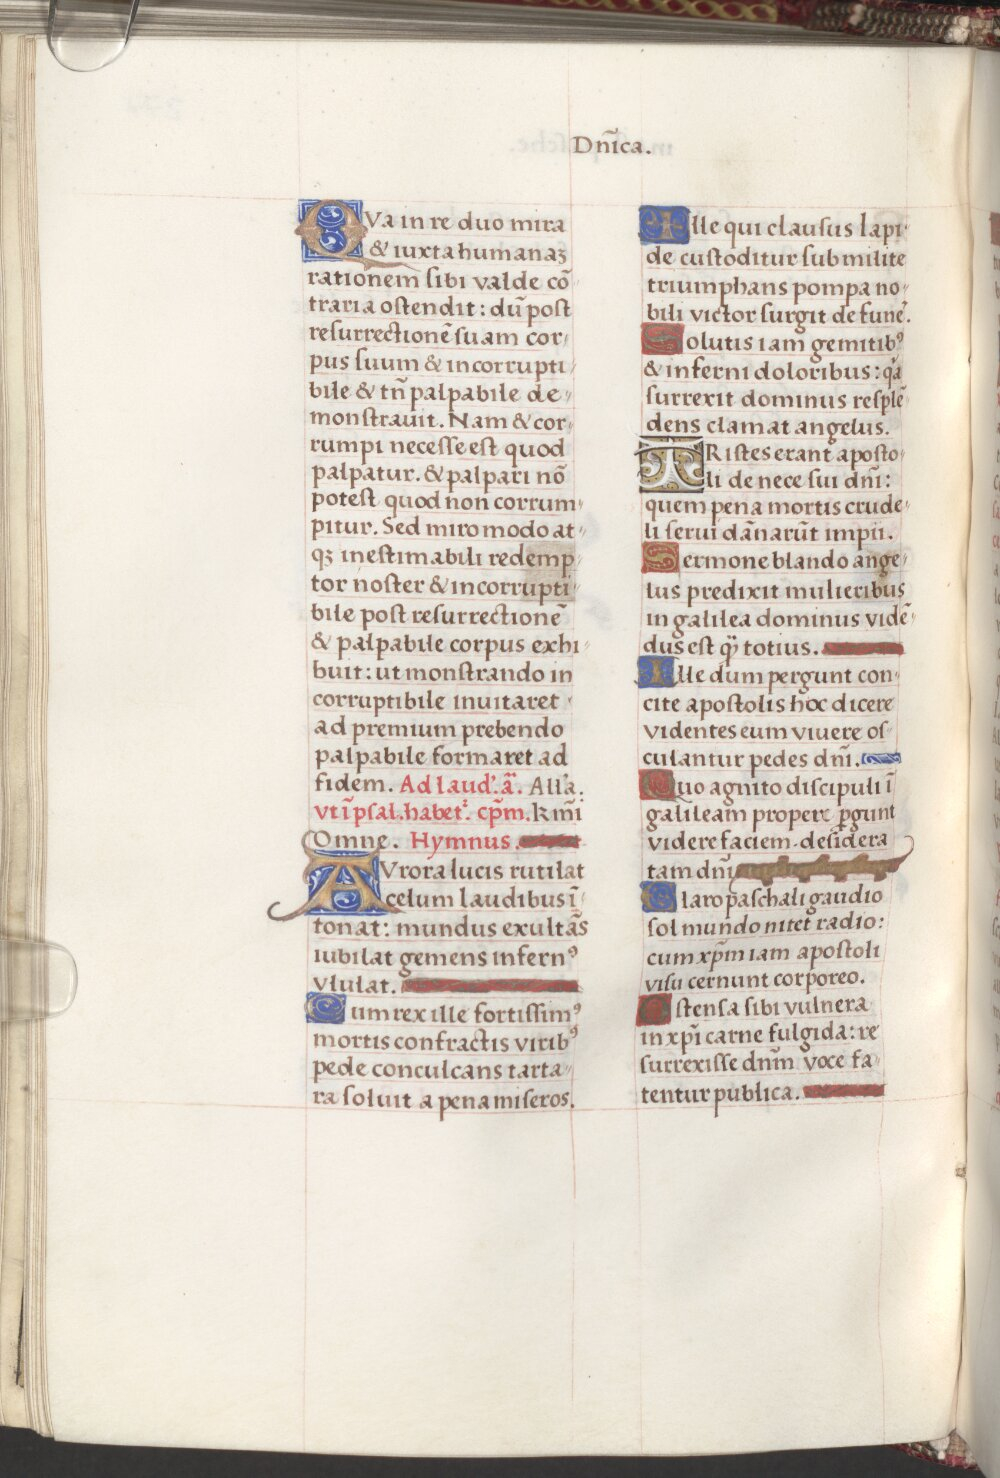 Dn̄ica.
QVa in re duo mira
& iuxta humanaʒ
rationem sibi valde cō
traria ostendit: dū post
resurrectionē suam cor
pus suum & incorrupti
bile & tn̄ palpabile de
monstrauit. Nam & cor
rumpi necesse est quod
palpatur. & palpari nō
potest quod non corrum
pitur. Sed miro modo at
qʒ inestimabili redemp
tor noster & incorrupti
bile post resurrectionē
& palpabile corpus exhi
buit: ut monstrando in
corruptibile inuitaret
ad premium prebendo
palpabile formaret ad
fidem. Ad laud'. ā. All'a.
vt ī psal. habet'. cp̄m. k mī
Omne. Hymnus.
AVrora lucis rutilat
celum laudibus ī
tonat: mundus exultās
iubilat gemens infernꝰ
vlulat.
Cum rex ille fortissimꝰ
mortis confractis viribꝰ
pede conculcans tarta
ra soluit a pena miseros.
Ille qui clausus lapi
de custoditur sub milite
triumphans pompa no
bili victor surgit de funē.
Solutis iam gemitibꝰ
& inferni doloribus: q̄a
surrexit dominus resplē
dens clamat angelus.
TRistes erant aposto
li de nece sui dn̄i:
quem pena mortis crude
li serui dānarūt impii.
Sermone blando ange
lus predixit mulieribus
in galilea dominus vidē
dus est q̄ totius.
Ille dum pergunt con
cite apostolis hoc dicere
videntes eum viuere os
culantur pedes dn̄i.
Quo agnito discipuli ī
galileam propere ꝑgunt
videre faciem desidera
tam dn̄i
Claro paschali gaudio
sol mundo nitet radio:
cum xp̄m iam apostoli
visu cernunt corporeo.
Ostensa sibi vulnera
in xp̄i carne fulgida: re
surrexisse dnm̄ voce fa
tentur publica.